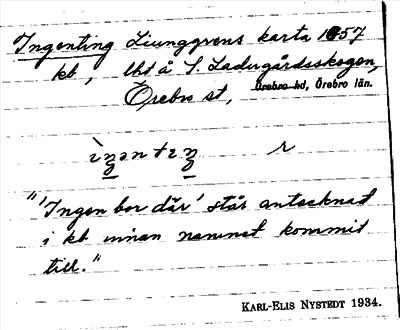 Ingenting Ljunggrens karta 1857
kb, lht å S. Ladugårdsskogen,
Örebro st, Örebro hd, Örebro län.
r
"'Ingen bor där' står antecknat
i kb innan namnet kommit
till."
KARL-ELIS NYSTEDT 1934.